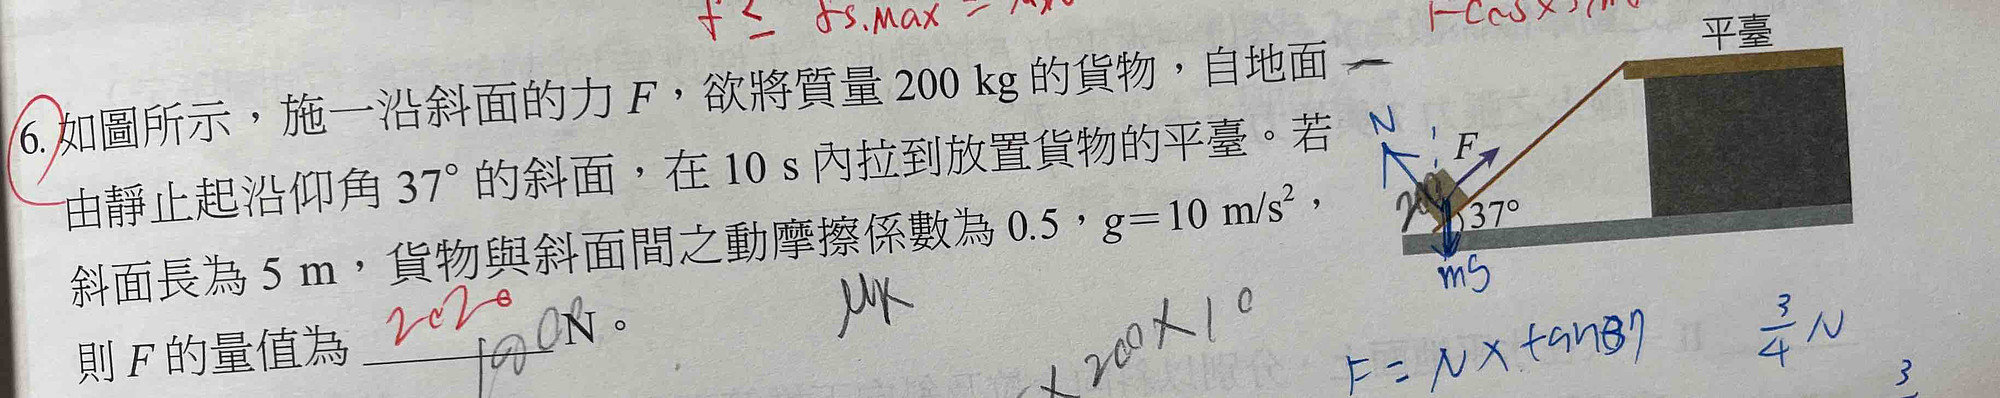 f ≤ fs.max =
平臺
6. 如圖所示，施一沿斜面的力 F，欲將質量 200 kg 的貨物，自地面
由靜止起沿仰角 37° 的斜面，在 10 s 內拉到放置貨物的平臺。若
斜面長為 5 m，貨物與斜面間之動摩擦係數為 0.5，g=10 m/s²，
則 F 的量值為 2020 N。
1000
μk
×200×10
N
F
200
37°
mg
F = N×tan37
3/4 N
3